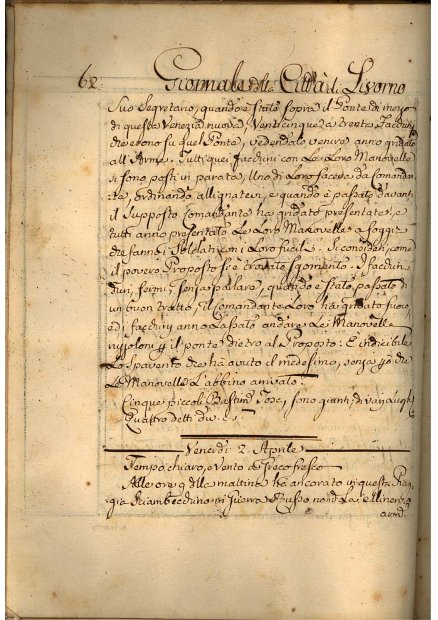 62 Giornale della Città di Livorno
Suo Segretario, quando è stato sopra il Ponte di mezo
di questa Venezia nuova, Venticinque à trenta Facchini
che erono su quel Ponte, vedendolo venire anno gridato
all'Arme. Tutti quei facchini con Le Loro Manovelle
si sono posti in parata, Uno di Loro faceva da Comandan
te, ordinando allignatevi, e quando è passato davanti
il supposto comandante ha gridato presentate, e
tutti anno presentato Le Loro Manovelle a foggia
che fanno i soldati con i Loro fucili. Si consideri come
il povero Proposto si è trovato sgomento. I facchini
duri, fermi, senza parlare, quando è stato passato di
un buon tratto, il comandante Loro ha gridato fuoco
ed i facchini anno Lassato andare Le Manovelle
ruzoloni per il ponte dietro al Proposto. È indicibile
Lo spavento che ha avuto il medesimo, senza però che
Le Manovelle L'abbino arrivato.
Cinque piccoli Bastimti Tosci, sono giunti di vari Luoghi
Quattro detti
Venerdi 2. Aprile
Tempo chiaro, e vento a Greco fresco
Alle ore 9 della mattina ha ancorato in questa Piag
gia Sciambecchino di Guerra Russo nomto La